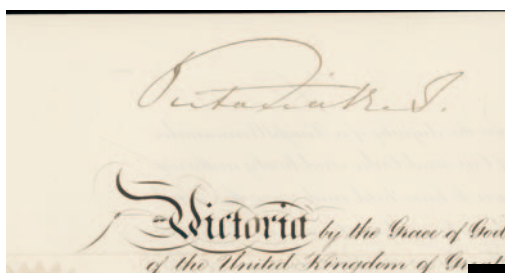 Victoria R. I.
Victoria by the Grace of God
of the United Kingdom of Great